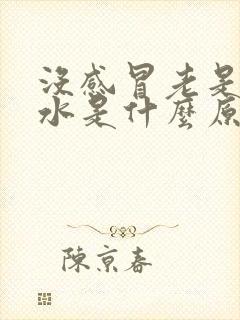 沒感冒老是
水是什麼原
陳京春